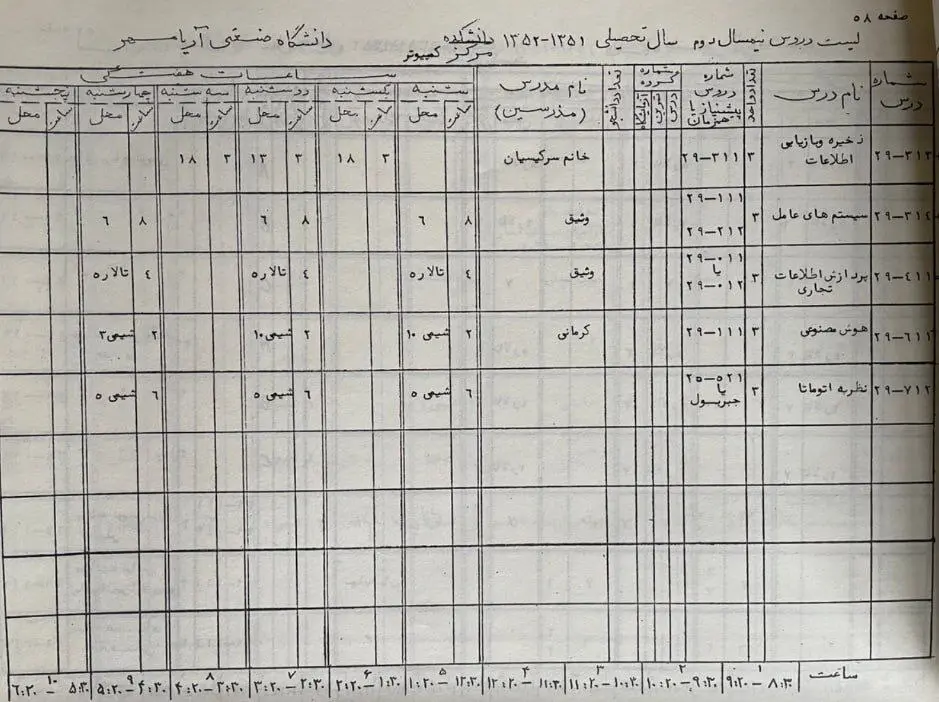 صفحه ۵۸
لیست دروس نیمسال دوم سال تحصیلی ۱۳۵۱-۱۳۵۲ دانشکده مرکز کمپیوتر دانشگاه صنعتی آریامهر
شماره درس
نام درس
تعداد واحد
شماره دروس پیشنیاز یا همزمان
شماره گروه
درس
تمرین
آزمایشگاه
تعداد دانشجو
نام مدرس (مدرسین)
ساعات هفتگی
شنبه یکشنبه دوشنبه سه شنبه چهارشنبه پنجشنبه
ساعت محل ساعت محل ساعت محل ساعت محل ساعت محل ساعت محل
۲۹-۳۱۳ ذخیره وبازیابی اطلاعات ۳ ۲۹-۳۱۱ خانم سرکیسیان ۳ ۱۸ ۳ ۱۳ ۳ ۱۸
۲۹-۳۱٤ سیستم های عامل ۳ ۲۹-۱۱۱ ۲۹-۲۱۲ وثیق ۸ ۶ ۸ ۶ ۸ ۶
۲۹-٤۱۱ پردازش اطلاعات تجاری ۳ ۲۹-۰۱۱ یا ۲۹-۰۱۲ وثیق ٤ تالار۵ ٤ تالار۵ ٤ تالار۵
۲۹-۶۱۱ هوش مصنوعی ۳ ۲۹-۱۱۱ کرمانی ۲ شیمی ۱۰ ۲ شیمی۱۰ ۲ شیمی۳
۲۹-۷۱۲ نظریه اتوماتا ۳ ۲۵-۵۲۱ یا جبربول ۶ شیمی ۵ ۶ شیمی ۵ ۶ شیمی ۵
ساعت
۱ ۲ ۳ ۴ ۵ ۶ ۷ ۸ ۹ ۱۰
۸:۳۰-۹:۲۰ ۹:۳۰-۱۰:۲۰ ۱۰:۳۰-۱۱:۲۰ ۱۱:۳۰-۱۲:۲۰ ۱۲:۳۰-۱:۲۰ ۱:۳۰-۲:۲۰ ۲:۳۰-۳:۲۰ ۳:۳۰-۴:۲۰ ۴:۳۰-۵:۲۰ ۵:۳۰-۶:۲۰